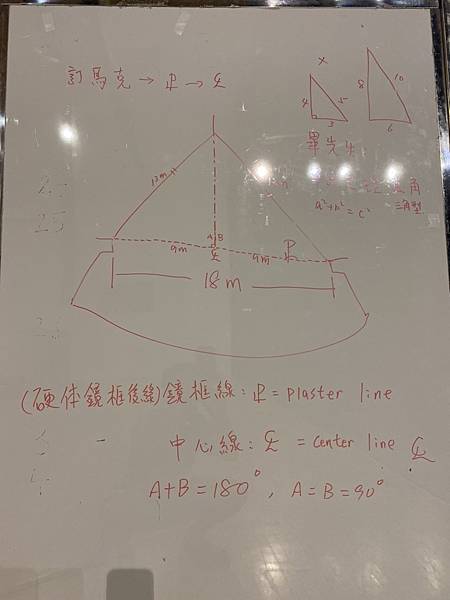 訂馬克→ ⅊ → ℄
x
4
5
3
8
10
6
畢先生
直角
三角型
a²+b²=c²
12m
A B
℄
9m
9m
⅊
18m
(硬体鏡框後緣)鏡框線: ⅊ = plaster line
中心線: ℄ = center line ℄
A+B=180°, A=B=90°